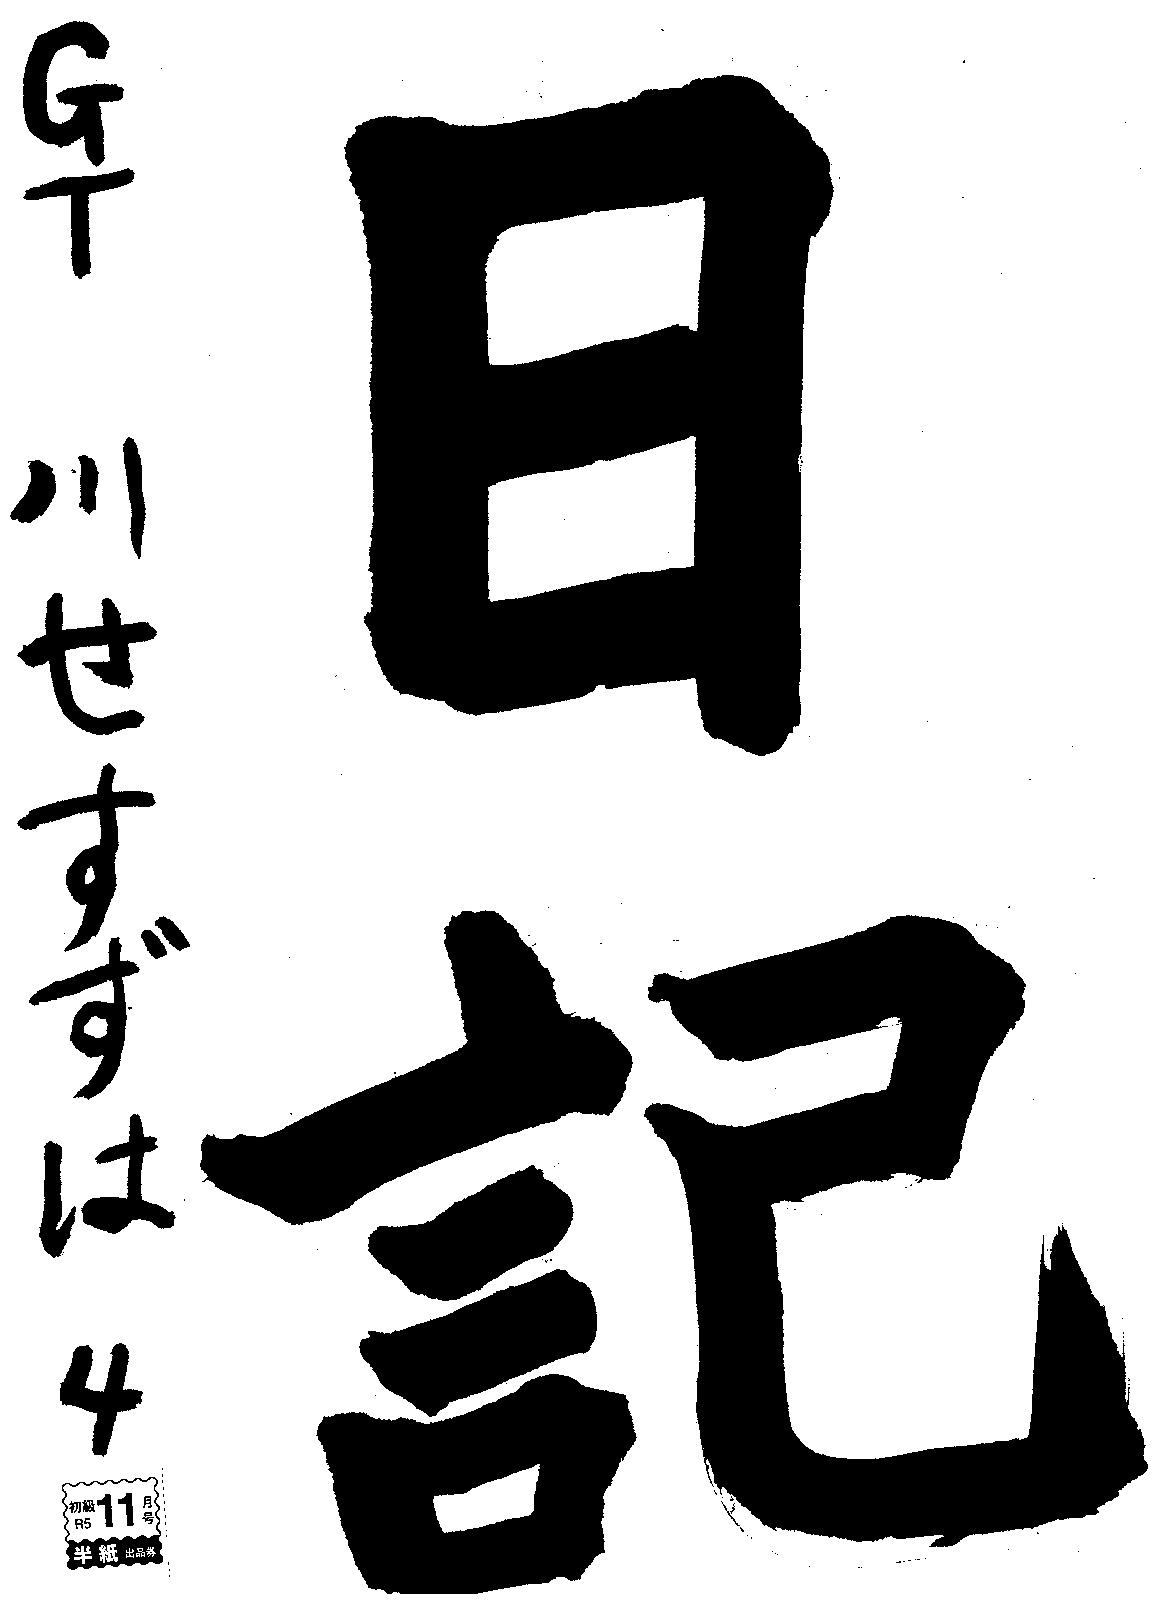 日記
GT 川せすずは 4
初級 11 月号
R5
半紙 出品券